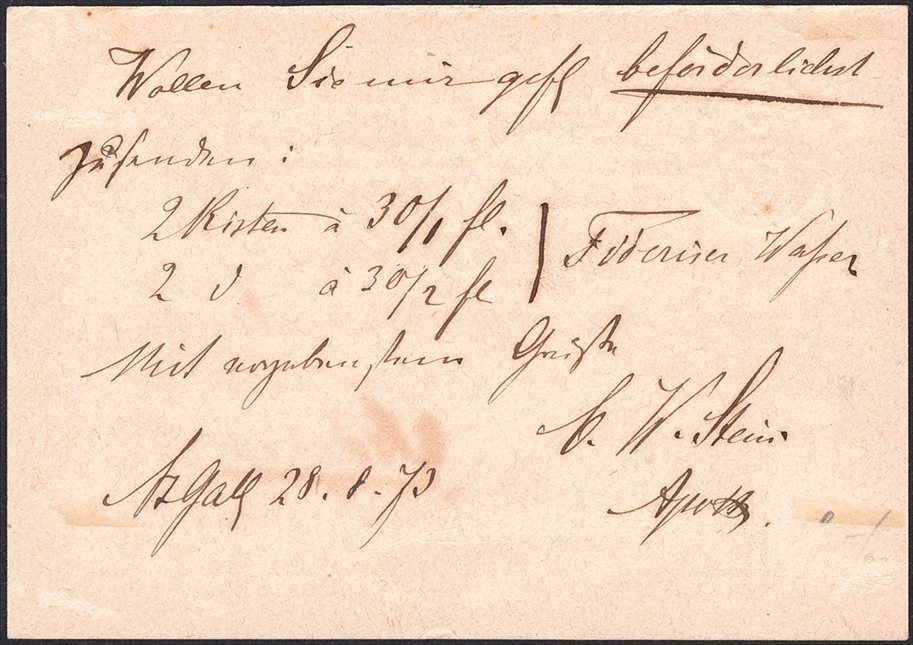 Wollen Sie mir gefl beförderlichst
zusenden:
2 Kisten à 30/1 fl.
2 d à 30/2 fl
Fideriser Wasser
Mit ergebenstem Grusse
C. W. Stein
StGall 28.8.73
Apoth.